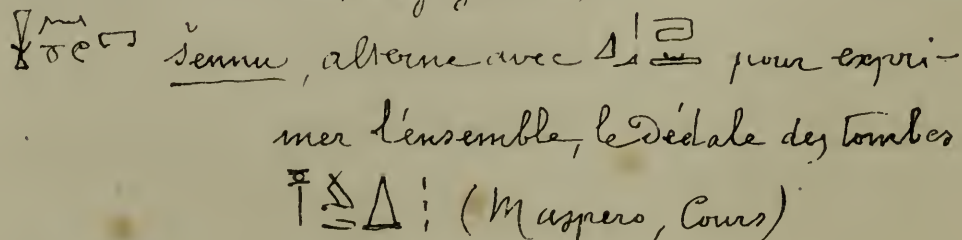 šennu, alterne avec pour expri-
mer l'ensemble, le Dédale des tombes
(Maspero, Cours)